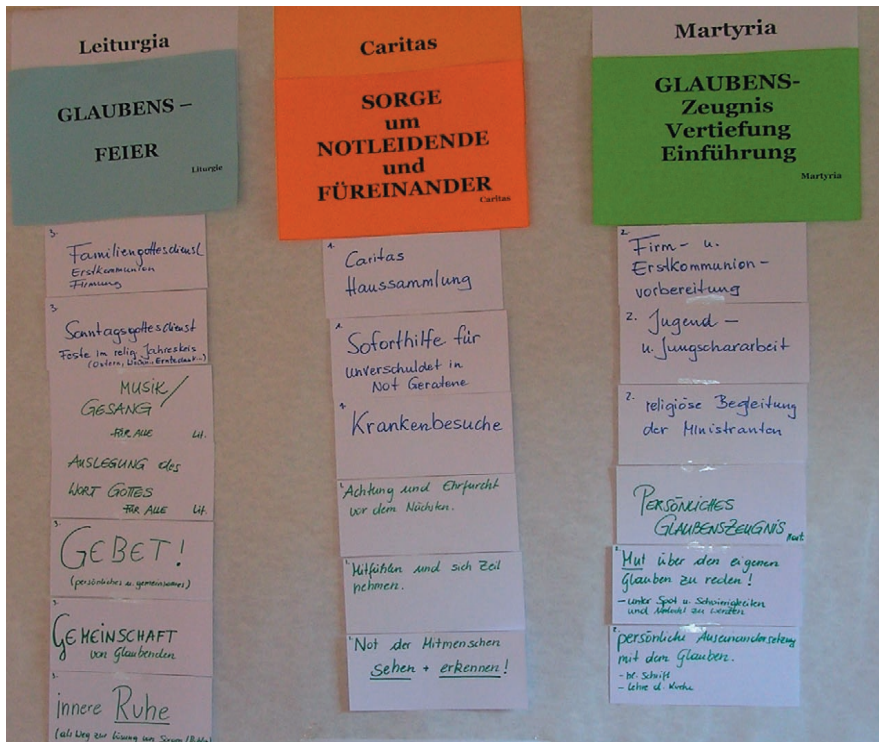 Leiturgia
GLAUBENS –
FEIER
Liturgie
3.
Familiengottesdienst
Erstkommunion
Firmung
3.
Sonntagsgottesdienst
Feste im relig. Jahreskeis
(Ostern, Erntedank...)
MUSIK/
GESANG
FÜR ALLE Lit.
AUSLEGUNG des
WORT GOTTES
FÜR ALLE Lit.
3.
GEBET!
(persönliches u. gemeinsames)
3.
GEMEINSCHAFT
von Glaubenden
3.
innere Ruhe
(als Weg zur Lösung von
Caritas
SORGE
um
NOTLEIDENDE
und
FÜREINANDER
Caritas
1.
Caritas
Haussammlung
1.
Soforthilfe für
unverschuldet in
Not Geratene
1.
Krankenbesuche
1. Achtung und Ehrfurcht
vor dem Nächsten.
1. Mitfühlen und sich Zeit
nehmen.
1. Not der Mitmenschen
sehen + erkennen!
Martyria
GLAUBENS-
Zeugnis
Vertiefung
Einführung
Martyria
2.
Firm- u.
Erstkommunion-
vorbereitung
2. Jugend-
u. Jungschararbeit
2. religiöse Begleitung
der Ministranten
PERSÖNLICHES
GLAUBENSZEUGNIS
Mart.
2.
Mut über den eigenen
Glauben zu reden!
- unter Spot u. Schwierigkeiten
und
2.
persönliche Auseinandersetzung
mit dem Glauben.
- hl. Schrift
- Lehre d. Kirche